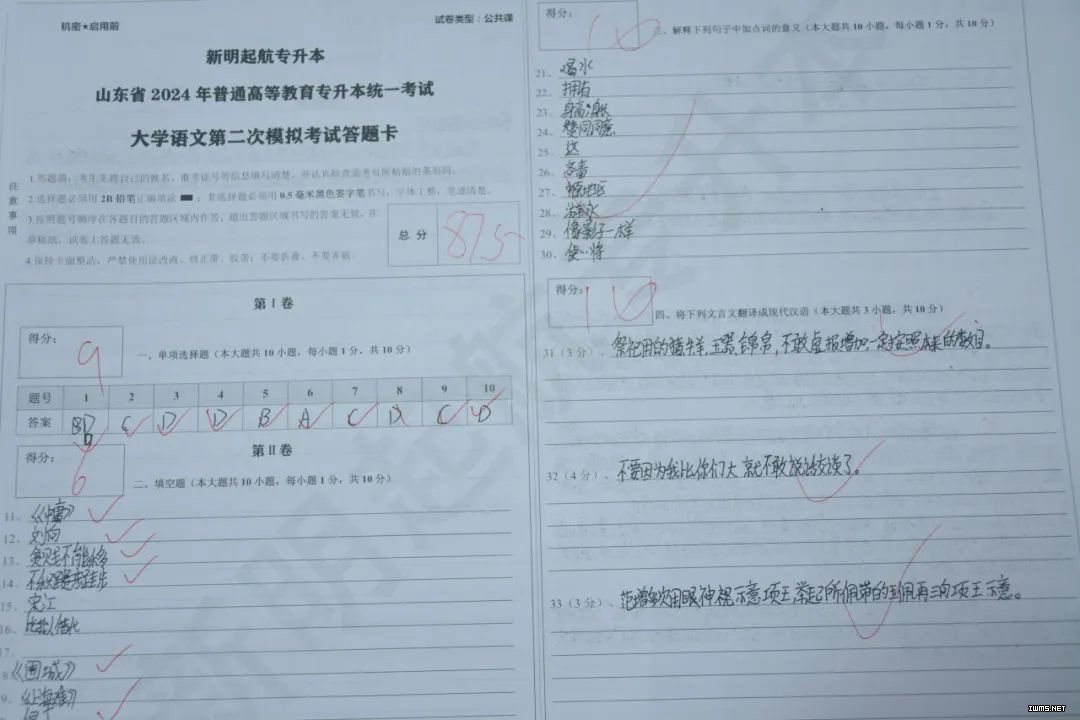 机密★启用前
试卷类型:公共课
新明起航专升本
山东省 2024 年普通高等教育专升本统一考试
大学语文第二次模拟考试答题卡
注意事项
1.答题前,考生先将自己的姓名、准考证号等信息填写清楚,并认真检查条形码所粘贴的条形码。
2.选择题必须用 2B 铅笔正确填涂 ;非选择题必须用 0.5 毫米黑色签字笔书写,字体工整,笔迹清楚。
3.按照题号顺序在各题目的答题区域内作答,超出答题区域书写的答案无效,在
草稿纸、试卷上答题无效。
4.保持卡面整洁,严禁使用涂改液、修正带、胶带;不要折叠、不要弄破。
总 分
87.5
第 Ⅰ 卷
得分:
9
一、单项选择题(本大题共 10 小题,每小题 1 分,共 10 分)
题号 1 2 3 4 5 6 7 8 9 10
答案 B C D D B A C D C D
第 Ⅱ 卷
得分:
6
二、填空题(本大题共 10 小题,每小题 1 分,共 10 分)
11、《中庸》
12、刘向
13、
14、
15、宋江
16、比拟 借代
17、
8、《围城》
9、《上海屋》
得分:
10
三、解释下列句子中加点词的意义(本大题共 10 小题,每小题 1 分,共 10 分)
21、喝水
22、拥有
23、
24、赞同同意
25、达
26、吝啬
27、
28、游泳
29、像影子一样
30、使…将
得分:
10
四、将下列文言文翻译成现代汉语(本大题共 3 小题,共 10 分)
31(3 分)、祭祀用的猪牛羊,玉器、锦帛,不敢虚报增加一定按照本来的数目。
32(4 分)、不要因为我比你们大 就不敢说话交谈了。
33(3 分)、范增多次用眼神视示意项王,举起了所佩带的玉佩再三向项王示意。
IWMS.NET